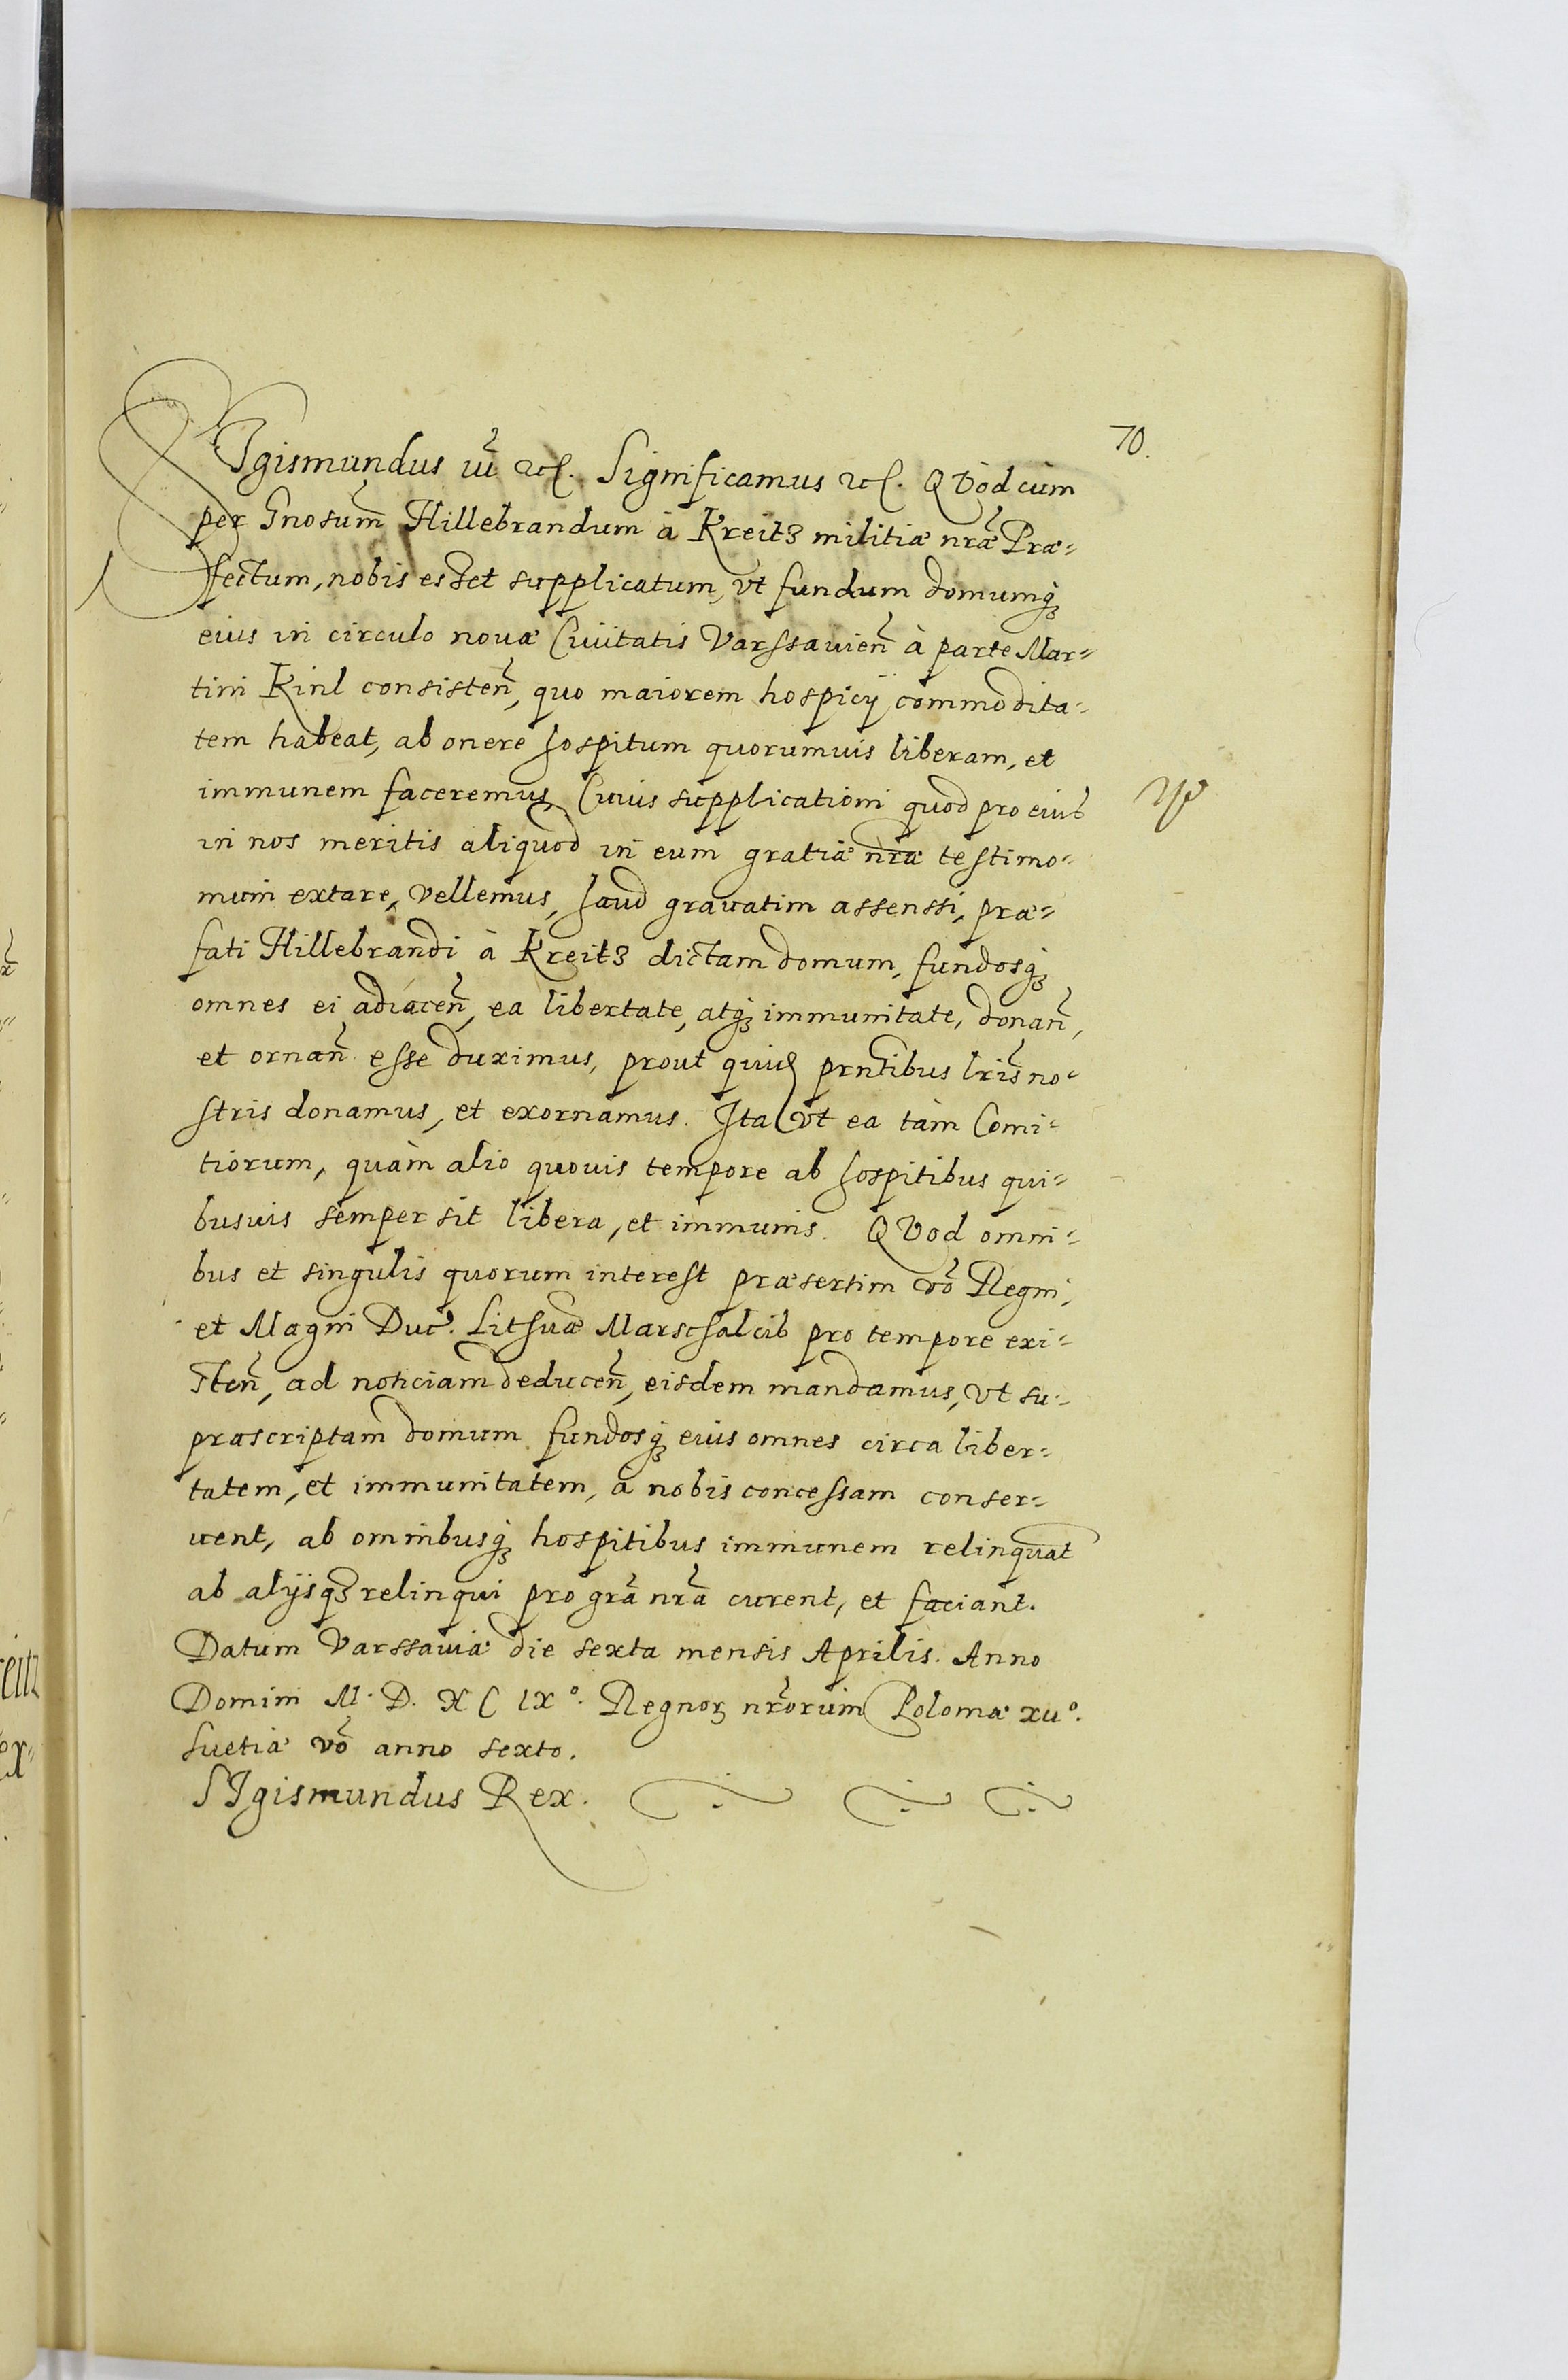 70.
SIgismundus iii etc. Significamus etc. QVòd cùm
per Gnosum̃ Hillebrandum à Kreitz militiæ nræ̃ Præ-
fectum, nobis esset supplicatum, vt fundum domumq́ꝫ
eius in circulo nouæ Ciuitatis Varssauien̄ à parte Mar-
tini Kinl consisten̄, quo maiorem hospicij commodita-
tem habeat, ab onere hospitum quorumuis liberam, et
immunem faceremus, Cuius supplicationi quod pro eius
in nos meritis aliquod in eum gratiæ nr̃æ testimo-
nium extare, vellemus, haud grauatim assenssi, præ-
fati Hillebrandi à Kreitz dictam domum, fundosq́ꝫ
omnes ei adiacen̄, ea libertate, atq́ꝫ immunitate, donan̄,
et ornan̄ esse duximus, prout quid prntibus lris̃ no-
stris donamus, et exornamus. Ita vt ea tàm Comi-
tiorum, quàm alio quouis tempore ab hospitibus qui-
busuis semper sit libera, et immunis. QVod omni-
bus et singulis quorum interest præsertim vō Regni,
et Magni Duc. Lithuæ Marschalcis pro tempore exi-
sten̄, ad noticiam deducen̄, eisdem mandamus, vt su-
prascriptam domum fundosq́ꝫ eius omnes circa liber-
tatem, et immunitatem, à nobis concessam conser-
uent, ab omnibusq́ꝫ hospitibus immunem relinquat
ab alijsqꝫ relinqui pro grã nrã curent, et faciant.
Datum Varssauiæ die sexta mensis Aprilis. Anno
Domini M. D. XC IXº. Regnoꝝ nr̃orum Poloniæ xiiº.
Suetiæ vō anno sexto.
SIgismundus Rex.